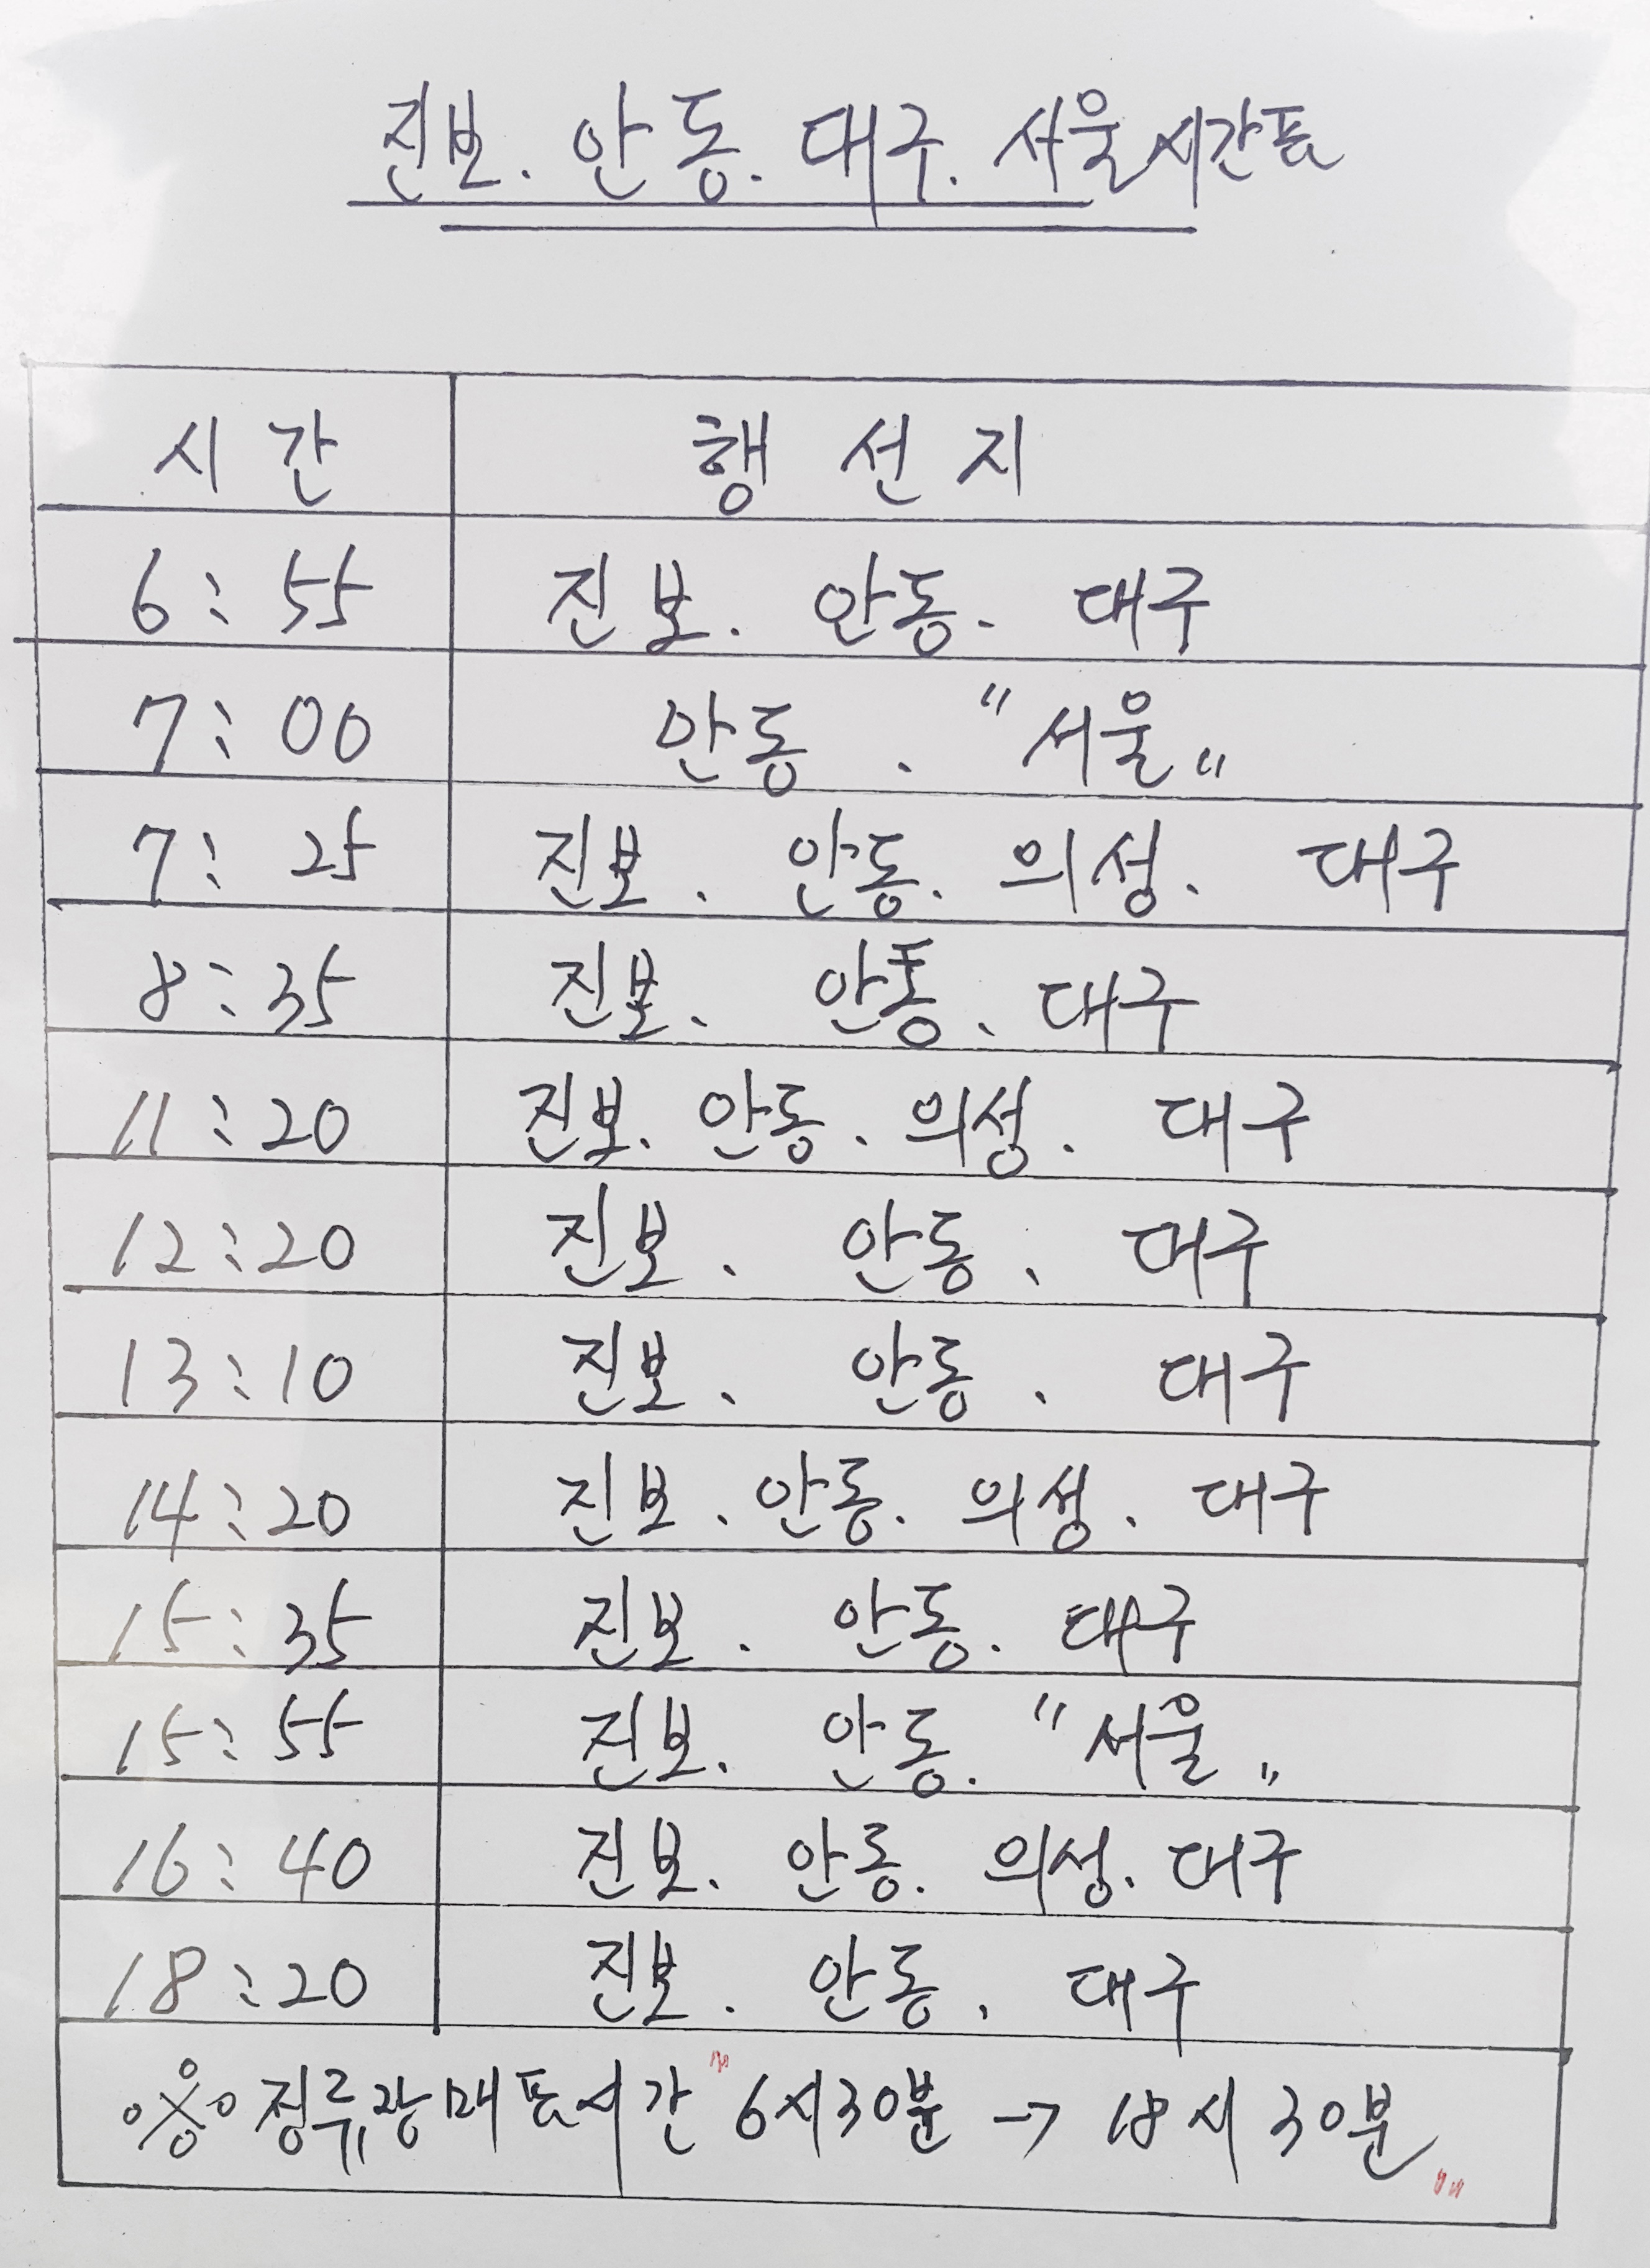 진보. 안동. 대구. 서울시간표
시간 행선지
6:55 진보. 안동. 대구
7:00 안동. "서울"
7:25 진보. 안동. 의성. 대구
8:35 진보. 안동. 대구
11:20 진보. 안동. 의성. 대구
12:20 진보. 안동. 대구
13:10 진보. 안동. 대구
14:20 진보. 안동. 의성. 대구
15:35 진보. 안동. 대구
15:55 진보. 안동. "서울"
16:40 진보. 안동. 의성. 대구
18:20 진보. 안동. 대구
※ 정류장매표시간 "6시30분 → 18시30분"